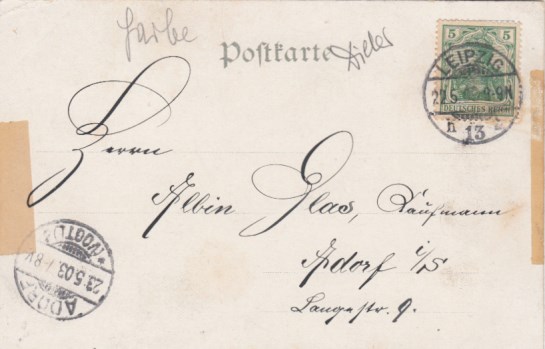 Farbe
Postkarte
Dieter
5 5
DEUTSCHES REICH
LEIPZIG
8-9N
13
Herrn
Albin Glas, Kaufmann
Adorf i/S
Langestr. 9.
ADORF
(VOGTL)
23.5.03. 7-8V